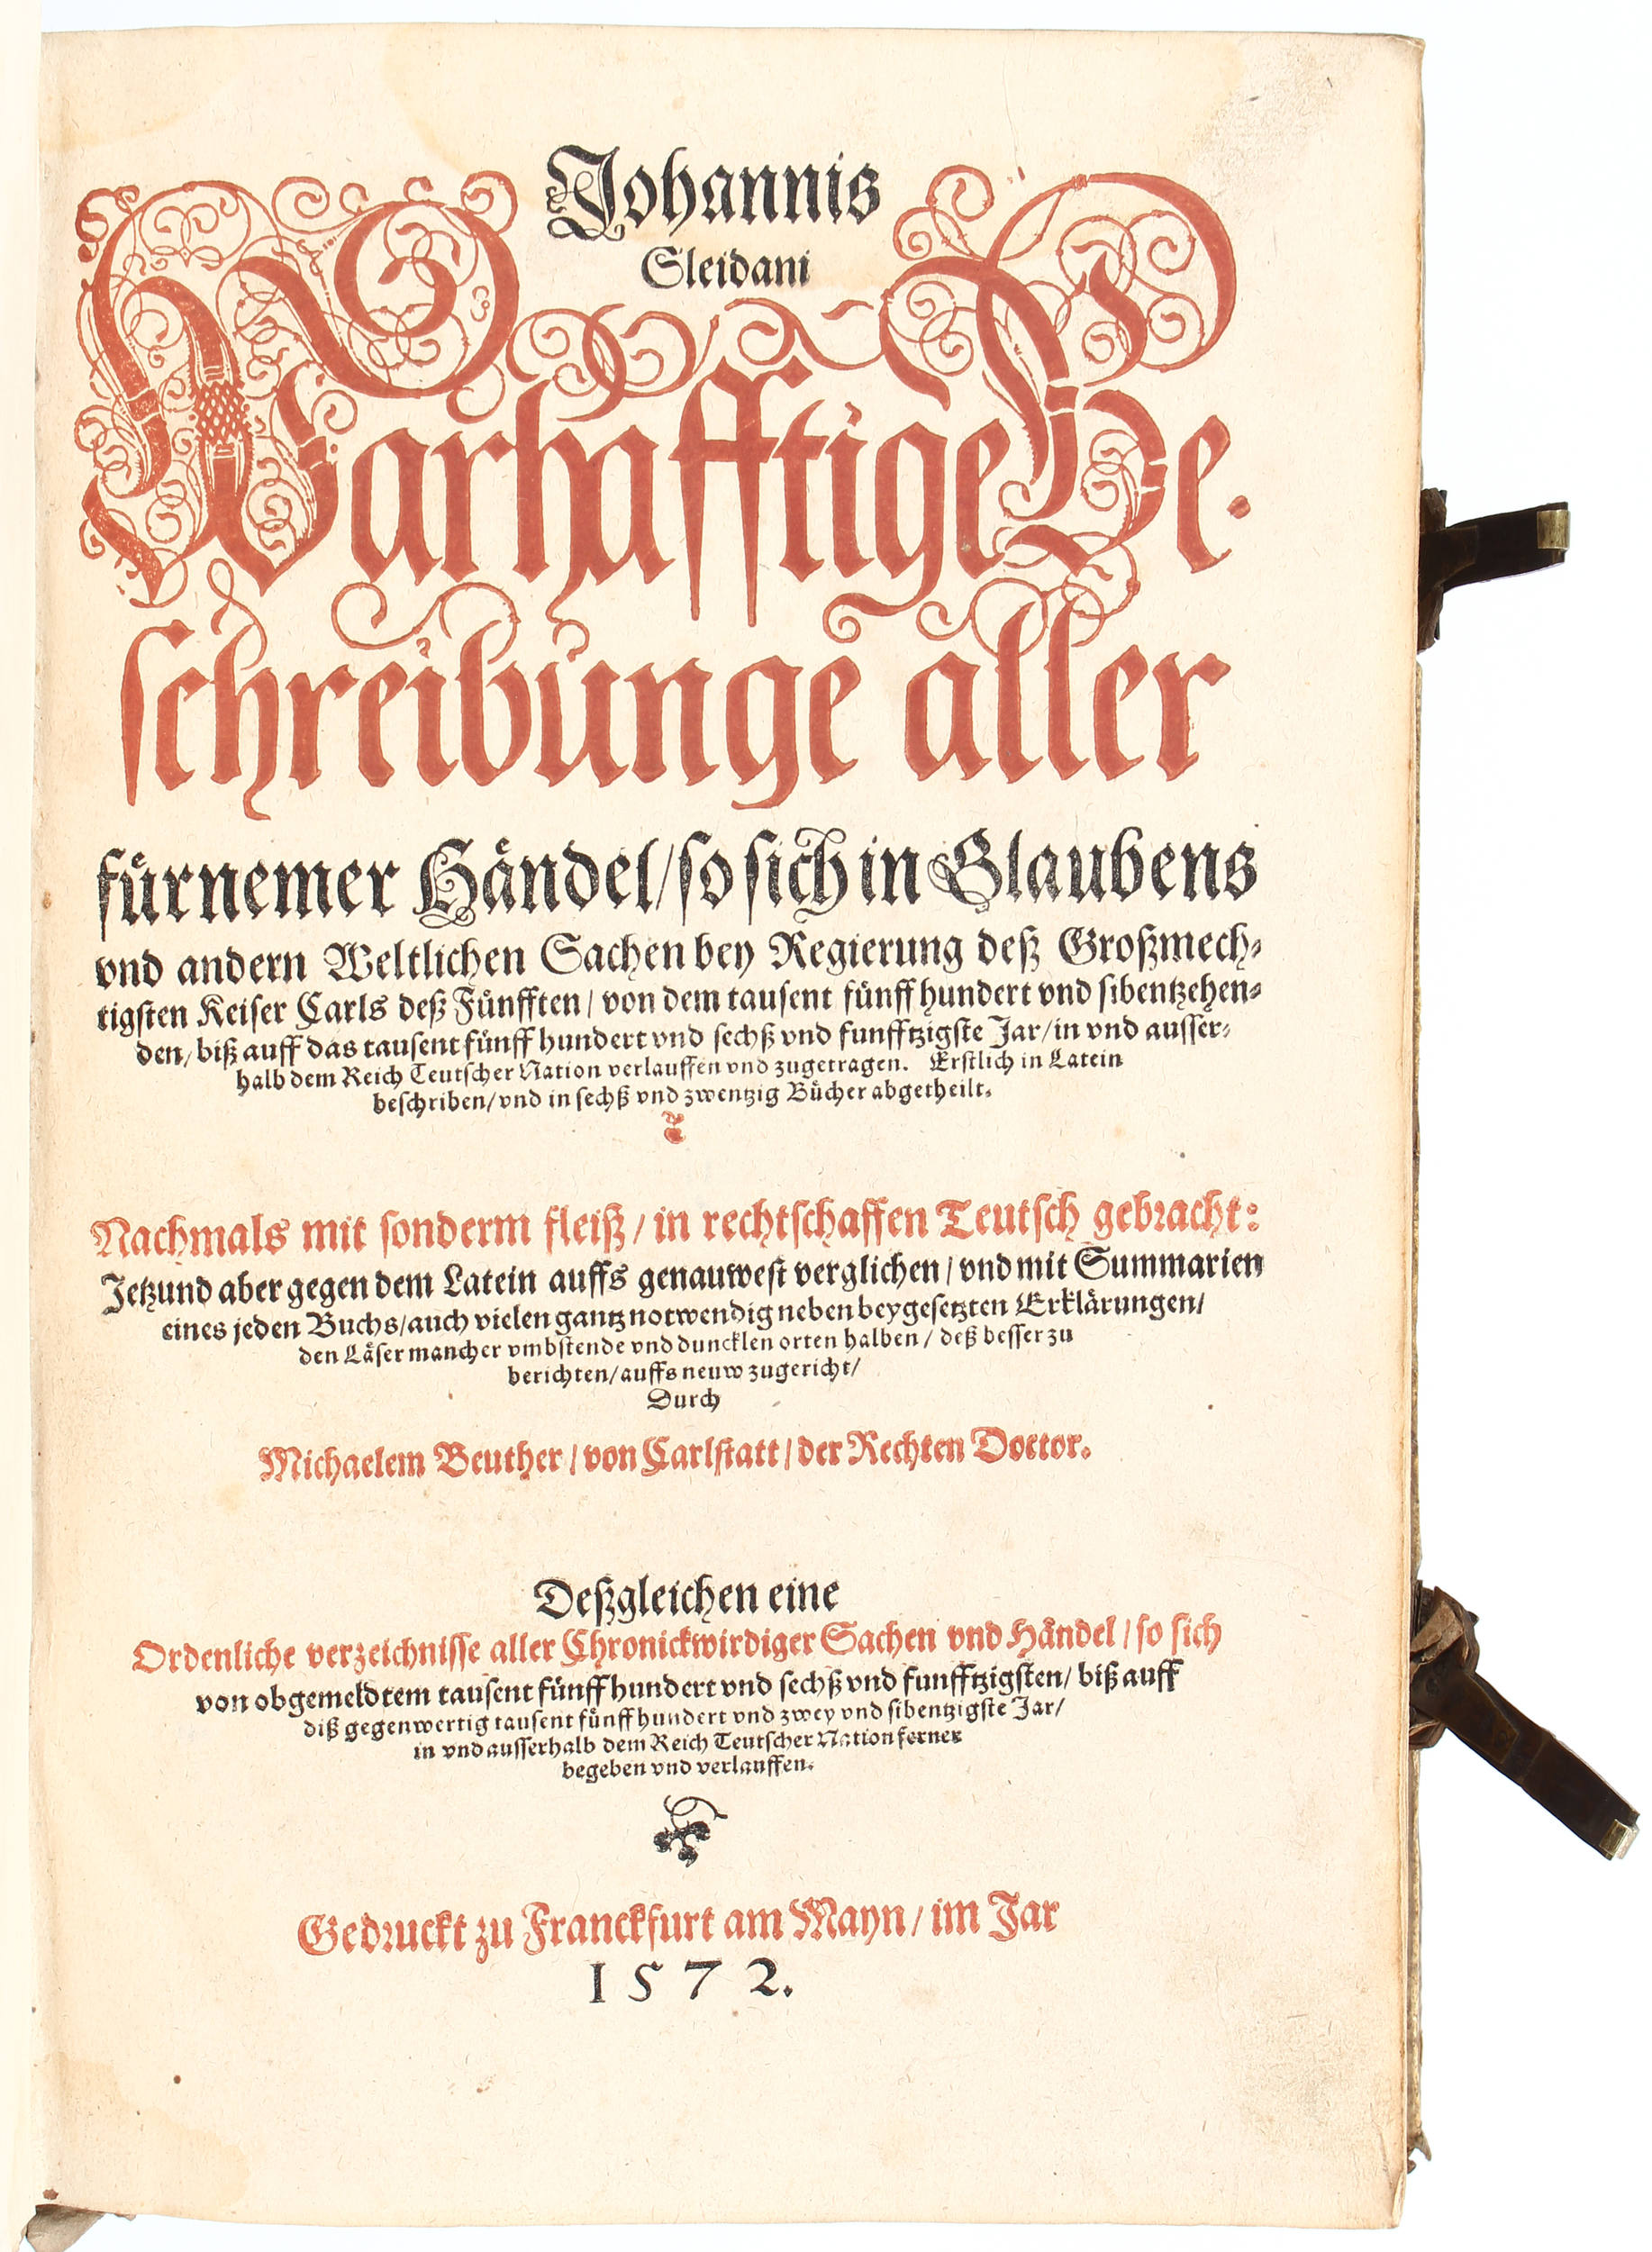 Johannis
Sleidani
Warhafftige Be-
schreibunge aller
fürnemer Händel/ so sich in Glaubens
vnd andern Weltlichen Sachen bey Regierung deß Großmech-
tigsten Keiser Carls deß Fünfften/ von dem tausent fünff hundert vnd sibentzehen-
den/ biß auff das tausent fünff hundert vnd sechß vnd funfftzigste Jar/ in vnd ausser-
halb dem Reich Teutscher Nation verlauffen vnd zugetragen. Erstlich in Latein
beschriben/ vnd in sechß vnd zwentzig Bücher abgetheilt.
Nachmals mit sonderm fleiß/ in rechtschaffen Teutsch gebracht:
Jetzund aber gegen dem Latein auffs genauwest verglichen/ vnd mit Summarien
eines jeden Buchs/ auch vielen gantz notwendig neben beygesetzten Erklärungen/
den Läser mancher vmbstende vnd duncklen orten halben/ deß besser zu
berichten/ auffs neuw zugericht/
Durch
Michaelem Beuther/ von Carlstatt/ der Rechten Doctor.
Deßgleichen eine
Ordenliche verzeichnisse aller Chronickwirdiger Sachen vnd Händel/ so sich
von obgemeldtem tausent fünff hundert vnd sechß vnd funfftzigsten/ biß auff
diß gegenwertig tausent fünff hundert vnd zwey vnd sibentzigste Jar/
in vnd ausserhalb dem Reich Teutscher Nation ferner
begeben vnd verlauffen.
Gedruckt zu Franckfurt am Mayn/ im Jar
1572.